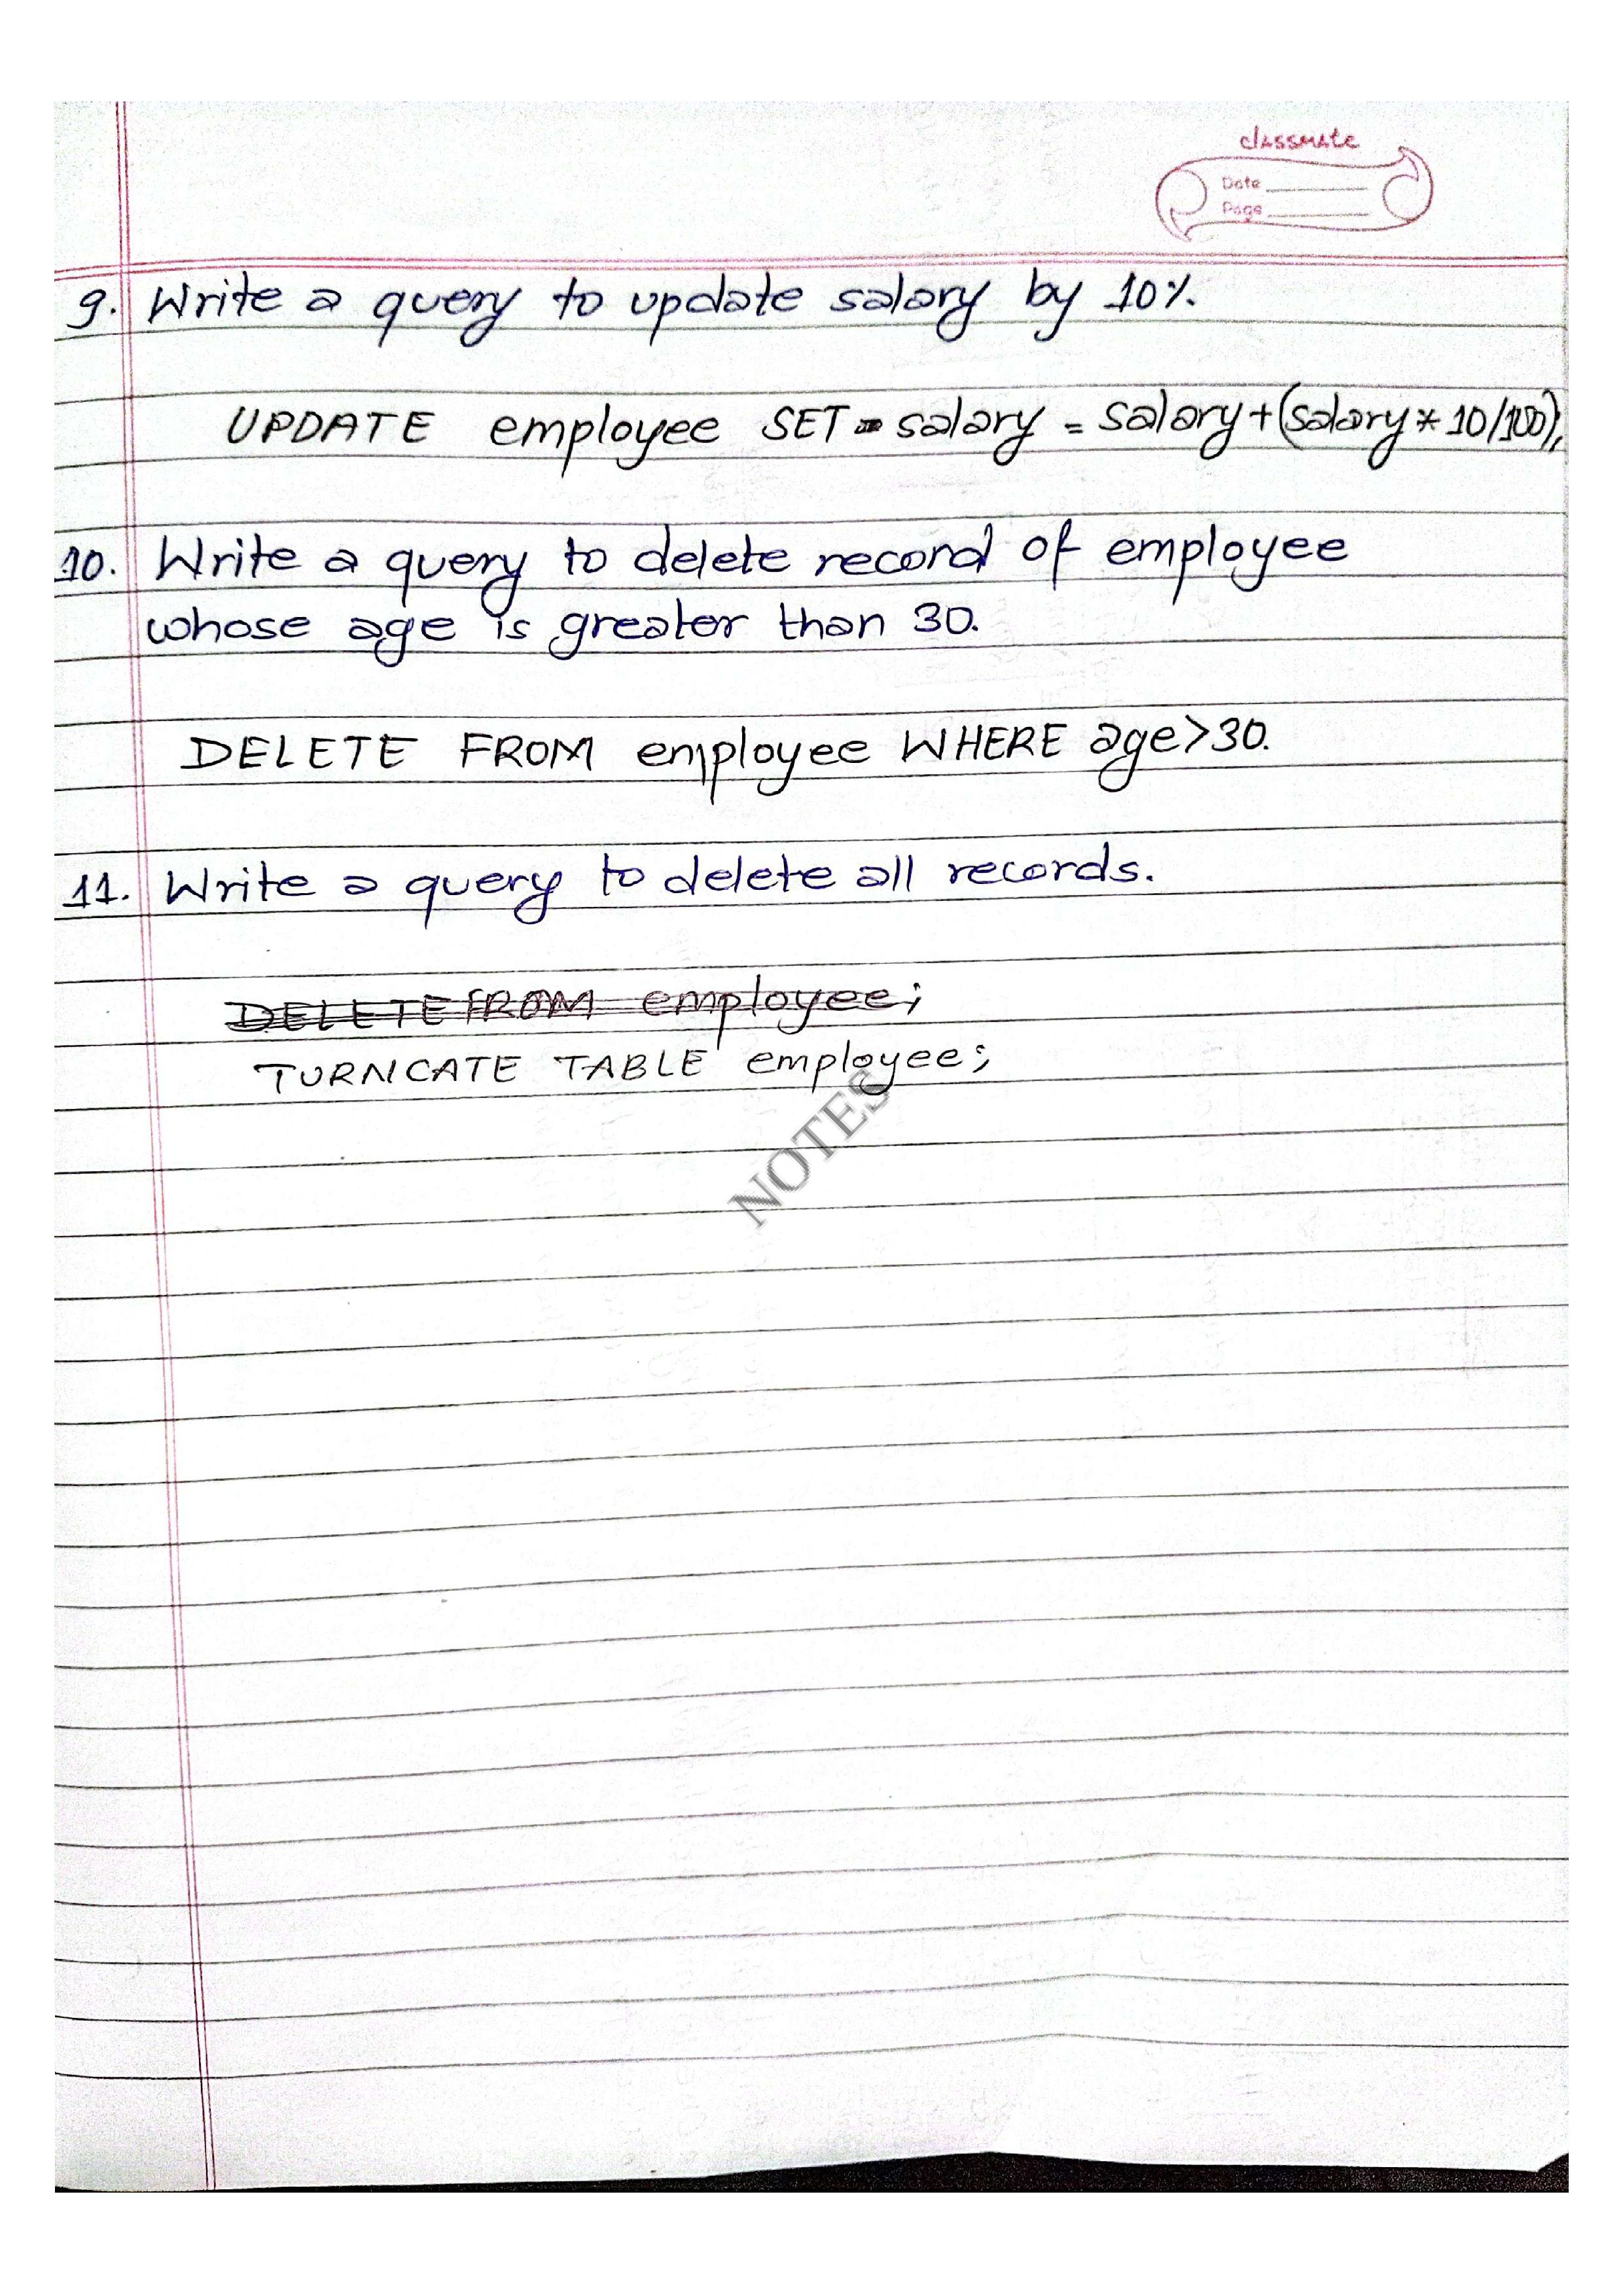 classmate
Date
Page
9. Write a query to update salary by 10%.
UPDATE employee SET salary = salary+(salary*10/100);
10. Write a query to delete record of employee
whose age is greater than 30.
DELETE FROM employee WHERE age>30.
11. Write a query to delete all records.
DELETE FROM employee;
TURNCATE TABLE employee;
NOTES